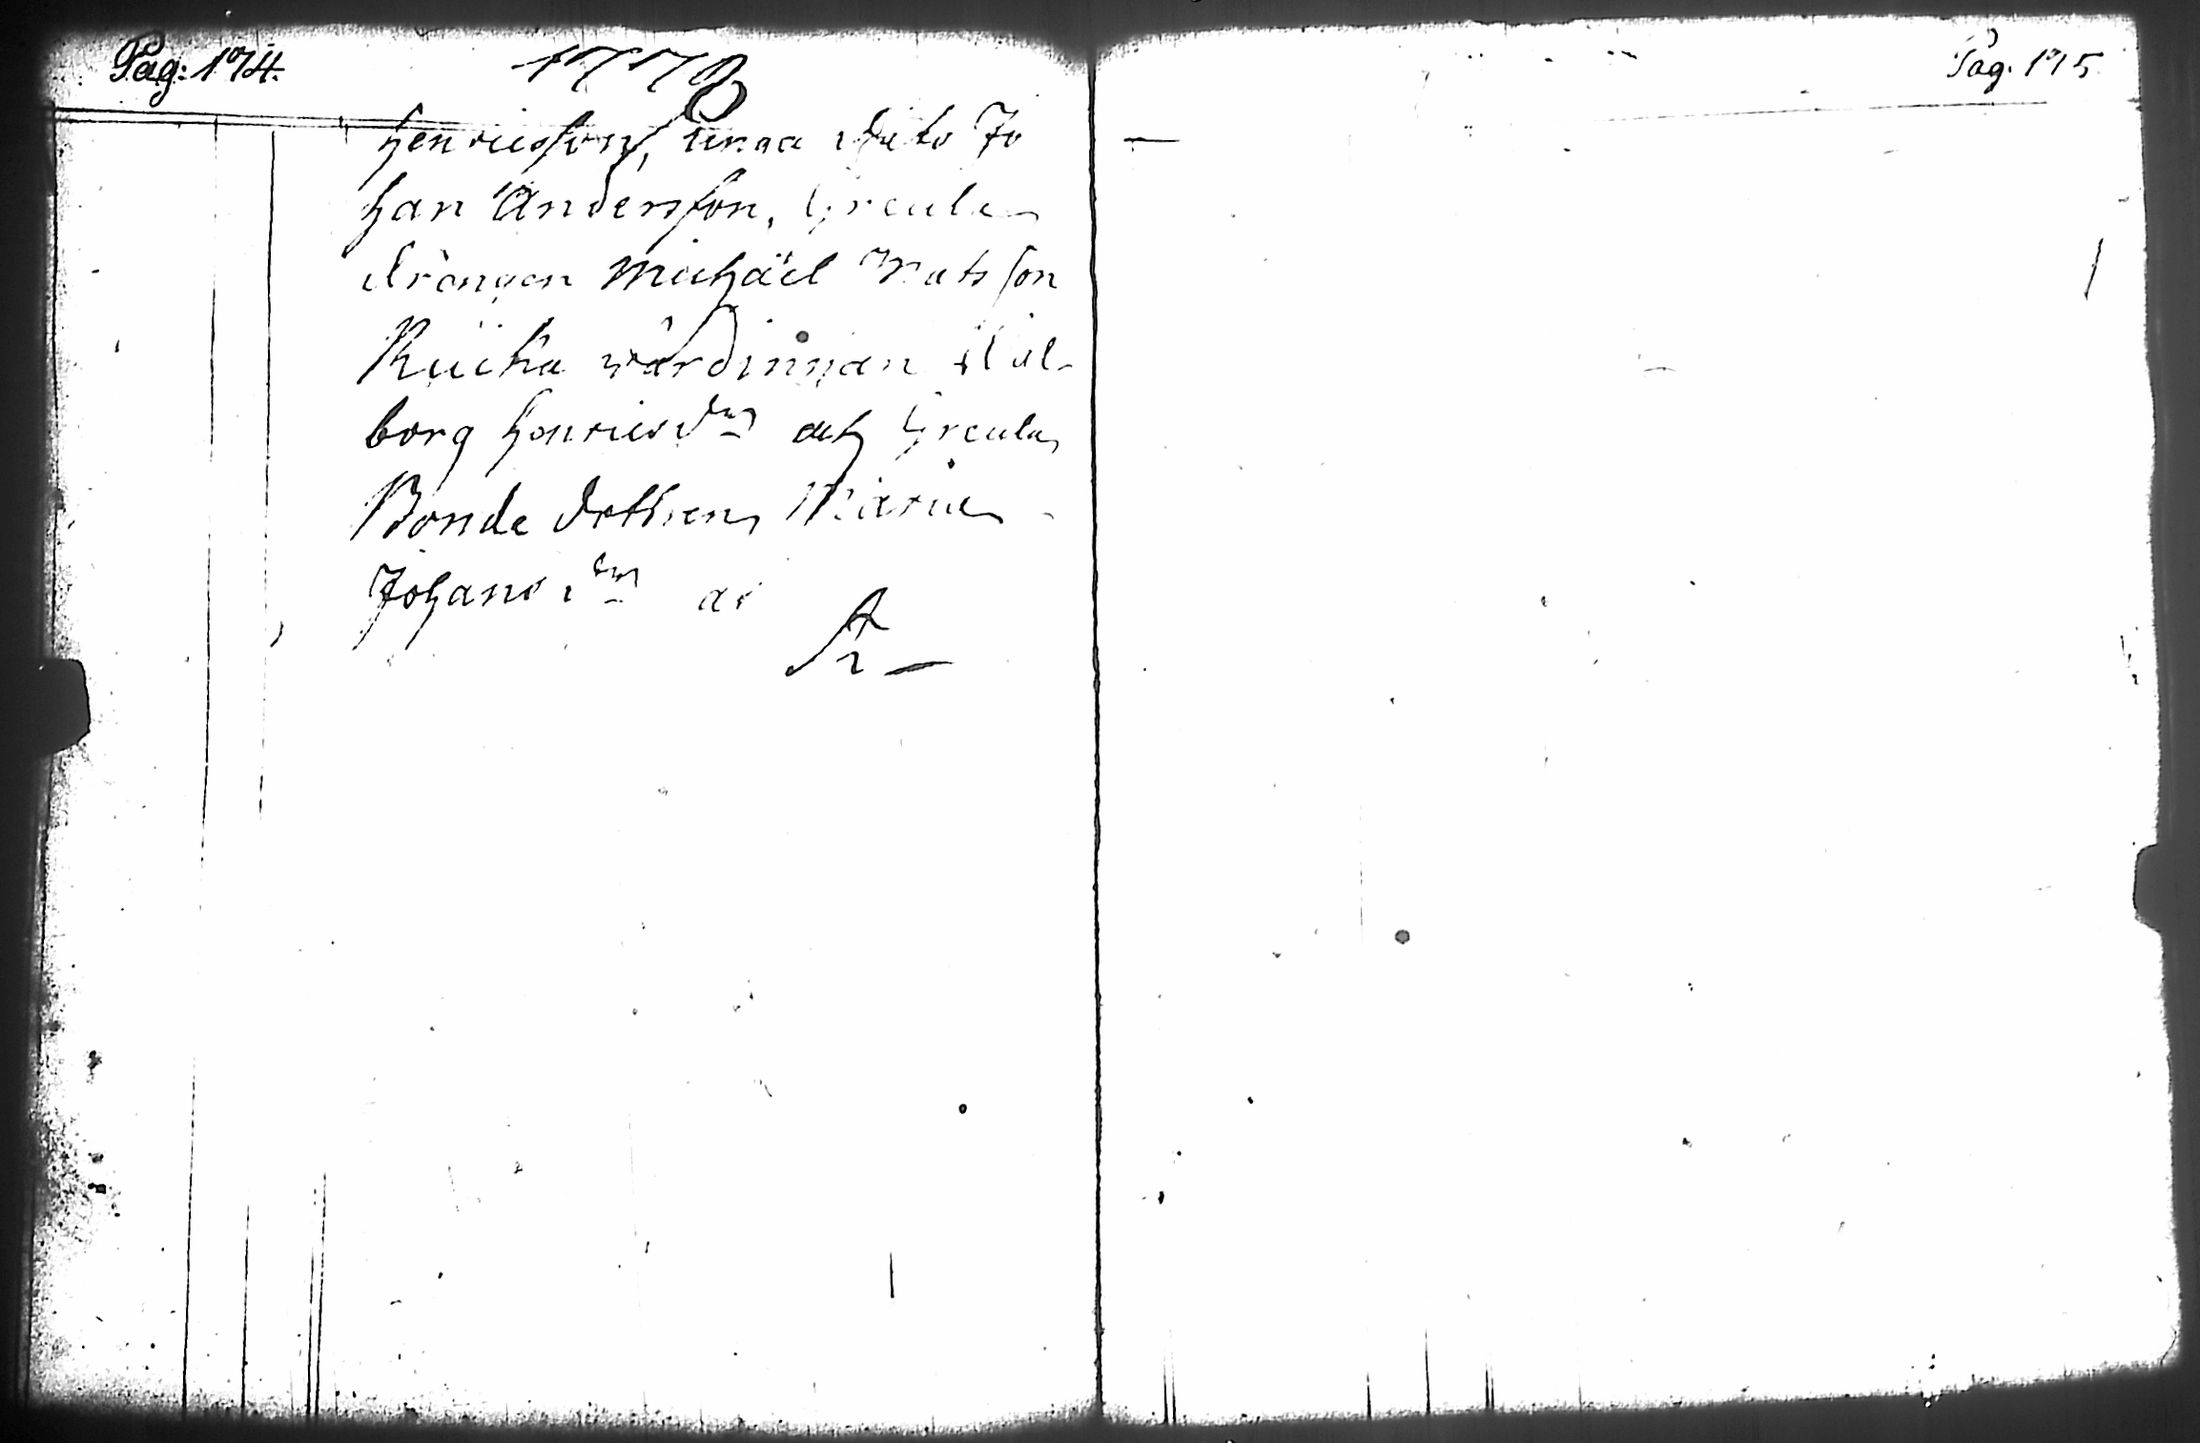 Pag: 174.
1778
Henricsson, unga dito Jo
han Andersson, Greula
drängen Michäel Matsson
Kuicka värdinnan Wal-
borg Henricsdr och Greula
Bonde dottren Maria
Johansdr
Pag. 175